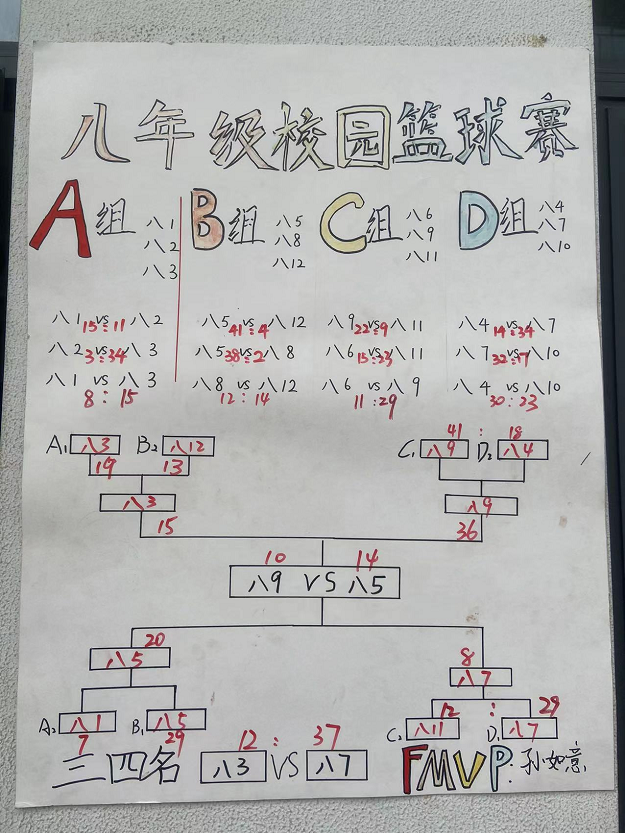 八年级校园篮球赛
A组 八1 八2 八3
B组 八5 八8 八12
C组 八6 八9 八11
D组 八4 八7 八10
八1 vs 八2 15:11
八2 vs 八3 3:34
八1 vs 八3
8:15
八5 vs 八12 41:4
八5 vs 八8 38:2
八8 vs 八12
12:14
八9 vs 八11 22:9
八6 vs 八11 15:23
八6 vs 八9
11:29
八4 vs 八7 14:34
八7 vs 八10 32:17
八4 vs 八10
30:23
A1 八3 B2 八12
19 13
八3
15
41:18
C1 八9 D2 八4
八9
36
10 14
八9 VS 八5
20
八5
A2 八1 B1 八5
7 29
8
八7
12:29
C2 八11 D1 八7
12:37
三四名 八3 VS 八7
FMVP:孙如意